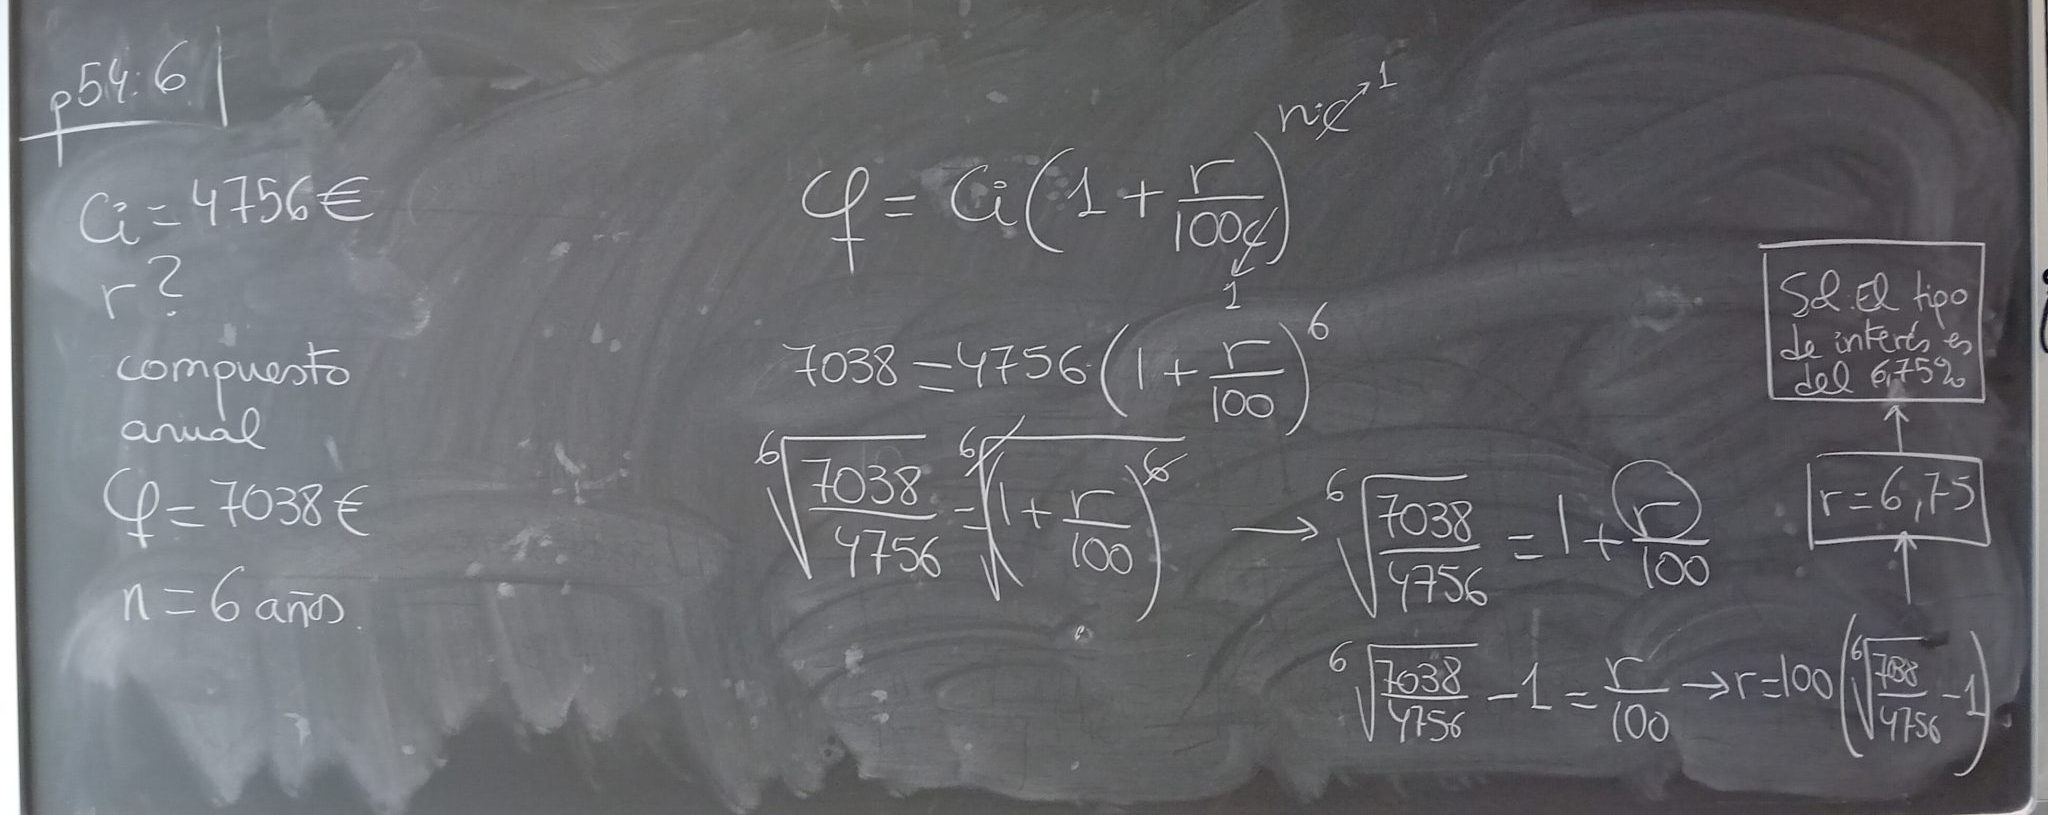 p54: 6
Ci = 4756€
r?
compuesto
anual
Cf = 7038€
n = 6 años.
Cf = Ci(1 + r/100c)^n·c → 1
1
7038 = 4756·(1 + r/100)^6
⁶√(7038/4756) = ⁶√(1 + r/100)^6 → ⁶√(7038/4756) = 1 + r/100
⁶√(7038/4756) - 1 = r/100 → r = 100(⁶√(7038/4756) - 1)
r = 6,75
Sol. El tipo
de interés es
del 6,75%